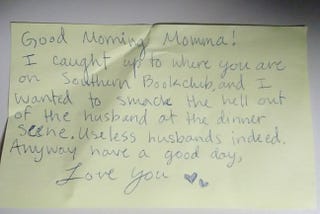 Good Morning Momma!
I caught up to where you are
on Southern Bookclub, and I
wanted to smack the hell out
of the husband at the dinner
scene. Useless husbands indeed.
Anyway have a good day,
Love You